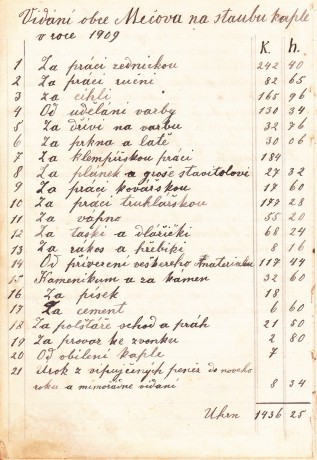 Vidání obce Mečova na staubu kaple
v roce 1909
K. h.
1 Za práci zednickou 242 40
2 Za práci ruční 82 65
3 za cihli 165 96
4 Od udělání varby 130 34
5 Za dříví na varbu 32 76
6 Za prkna a latě 30 06
7 Za klempířskou práci 184
8 Za plánek a grosě stavitelovi 27 32
9 Za práci kovářskou 17 60
10 Za práci truhlářskou 187 28
11 Za vápno 55 20
12 Za taški a dlážiki 68 24
13 Za rákos a hřebíki 8 16
14 Od přivezení veškereho materialu 117 44
15 Kameníkum a za kámen 32 60
16 Za písek 18
17 Za cement 6 60
18 Za polštáře vchod a práh 21 50
19 Za provaz ke zvonku 2 80
20 Od obílení kaple 7
21 Úrok z vipujčených peněz do noveho
roku a mimořádné vidaní 8 34
Uhrn 1436 25